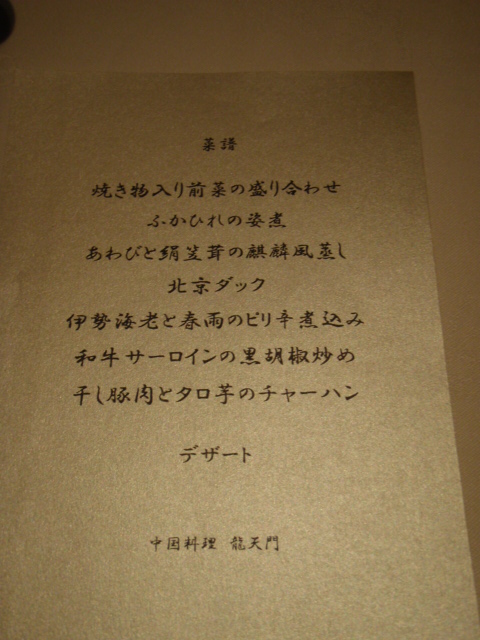 菜譜
焼き物入り前菜の盛り合わせ
ふかひれの姿煮
あわびと絹笠茸の麒麟風蒸し
北京ダック
伊勢海老と春雨のピリ辛煮込み
和牛サーロインの黒胡椒炒め
干し豚肉とタロ芋のチャーハン
デザート
中国料理 龍天門